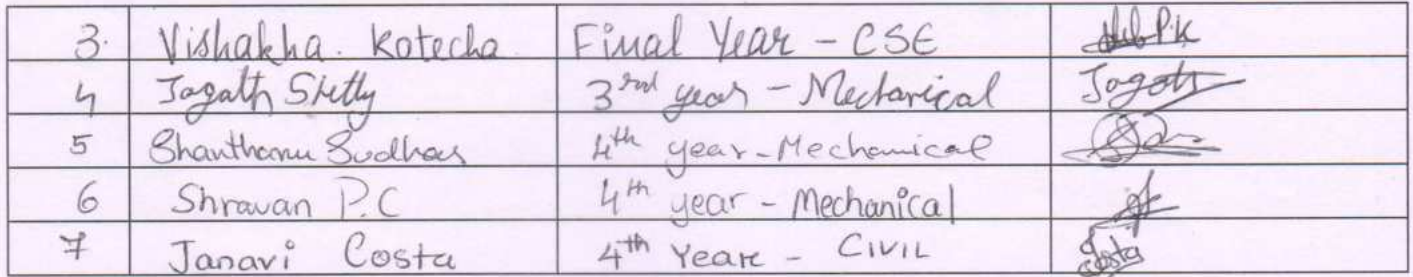 3. Vishakha. Kotecha Final Year - CSE
4 Jagath Shetty 3rd year - Mechanical Jagath
5 Shanthanu Sudhar 4th year - Mechanical
6 Shravan P.C 4th year - Mechanical
7 Janavi Costa 4th Year - CIVIL Costa